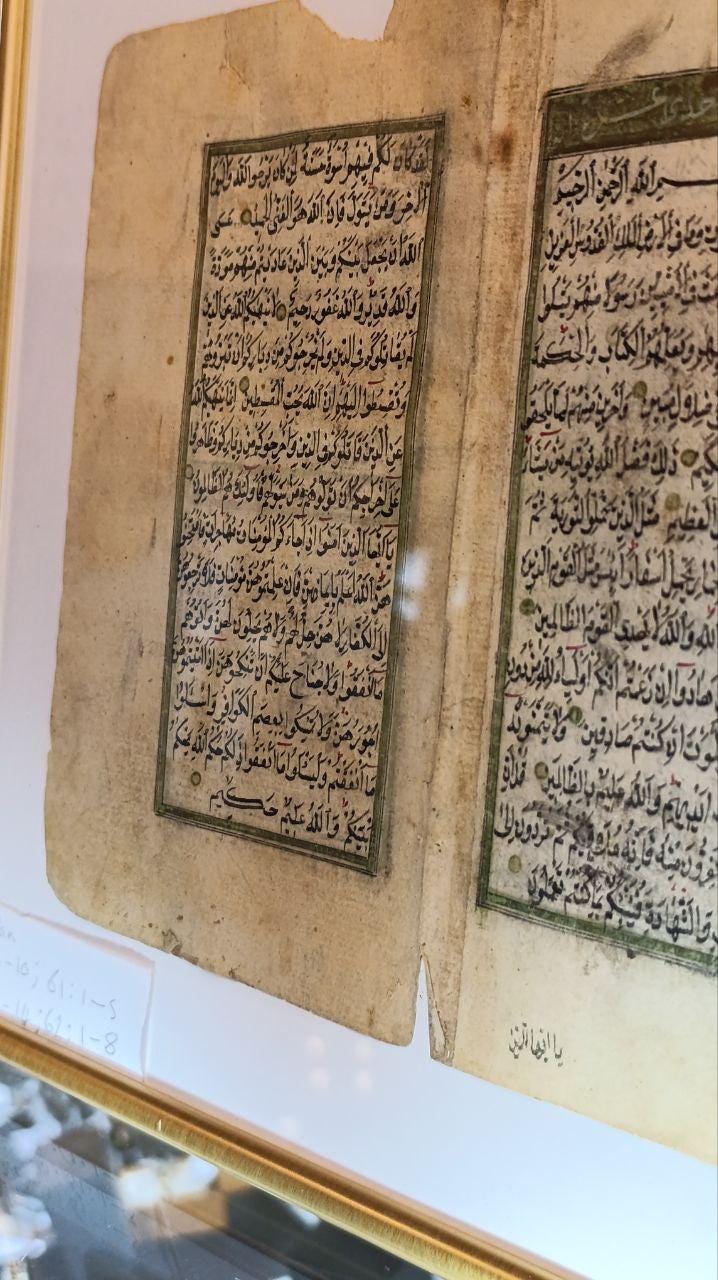 احدى عشر
بسم الله الرحمن الرحيم
وما في الأرض الملك القدوس العزيز
في الأميين رسولا منهم يتلوا
ويعلمهم الكتاب والحكمة
مبين وآخرين منهم لما يلحقوا
ذلك فضل الله يؤتيه من يشاء
العظيم مثل الذين حملوا التورية ثم
يحمل أسفارا بئس مثل القوم الذين
الله والله لا يهدي القوم الظالمين
هادوا إن زعمتم أنكم أولياء لله من دون
إن كنتم صادقين ولا يتمنونه
أيديهم والله عليم بالظالمين قل إن
تفرون منه فإنه ملاقيكم ثم تردون إلى
والشهادة فينبئكم بما كنتم تعملون
يا ايها الذين
لقد كان لكم فيهم أسوة حسنة لمن كان يرجو الله واليوم
الآخر ومن يتول فإن الله هو الغني الحميد عسى
الله أن يجعل بينكم وبين الذين عاديتم منهم مودة
والله قدير والله غفور رحيم لا ينهيكم الله عن الذين
لم يقاتلوكم في الدين ولم يخرجوكم من دياركم أن تبروهم
وتقسطوا إليهم إن الله يحب المقسطين إنما ينهيكم الله
عن الذين قاتلوكم في الدين وأخرجوكم من دياركم وظاهروا
على إخراجكم أن تولوهم ومن يتولهم فأولئك هم الظالمون
يا أيها الذين آمنوا إذا جاءكم المؤمنات مهاجرات فامتحنو
هن الله أعلم بإيمانهن فإن علمتموهن مؤمنات فلا ترجعوهن
إلى الكفار لا هن حل لهم ولا هم يحلون لهن وآتوهم
ما أنفقوا ولا جناح عليكم أن تنكحوهن إذا آتيتموهن
أجورهن ولا تمسكوا بعصم الكوافر واسئلوا
ما أنفقتم وليسئلوا ما أنفقوا ذلكم حكم الله يحكم
بينكم والله عليم حكيم
-10; 61:1-5
-14; 62:1-8